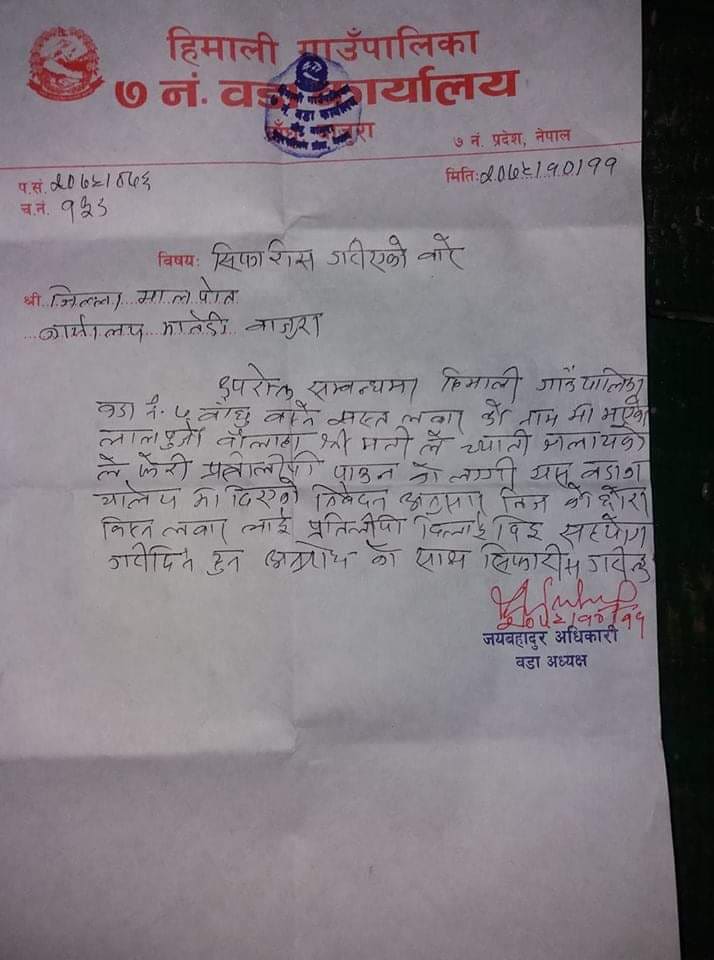 हिमाली गाउँपालिका
७ नं. वडा कार्यालय
बाजुरा
७ नं. प्रदेश, नेपाल
प.सं. २०७५/०७६
च.नं. १३८
मिति: २०७५/१०/११
विषय: सिफारिस गरीएको बारे
श्री जिल्ला माल पोत
कार्यालय मातेडी बाजुरा
उपरोक्त सम्बन्धमा हिमाली गाउँपालिका
वडा नं. ५ बाँधु बस्ने लवार को नाम मा भएको
लालपुर्जा श्री मती ले च्याती जलायको
ले फेरी प्रतीलीपी पाउन को लागी यस वडा
मा दिएको निवेदन अनुसार निज को छोरा
लवार लाई प्रतिलीपी दिलाई दिइ सहयोग
गरीदिन हुन अनुरोध का साथ सिफारीस गर्दछु
२०७५/१०/११
जयबहादुर अधिकारी
वडा अध्यक्ष